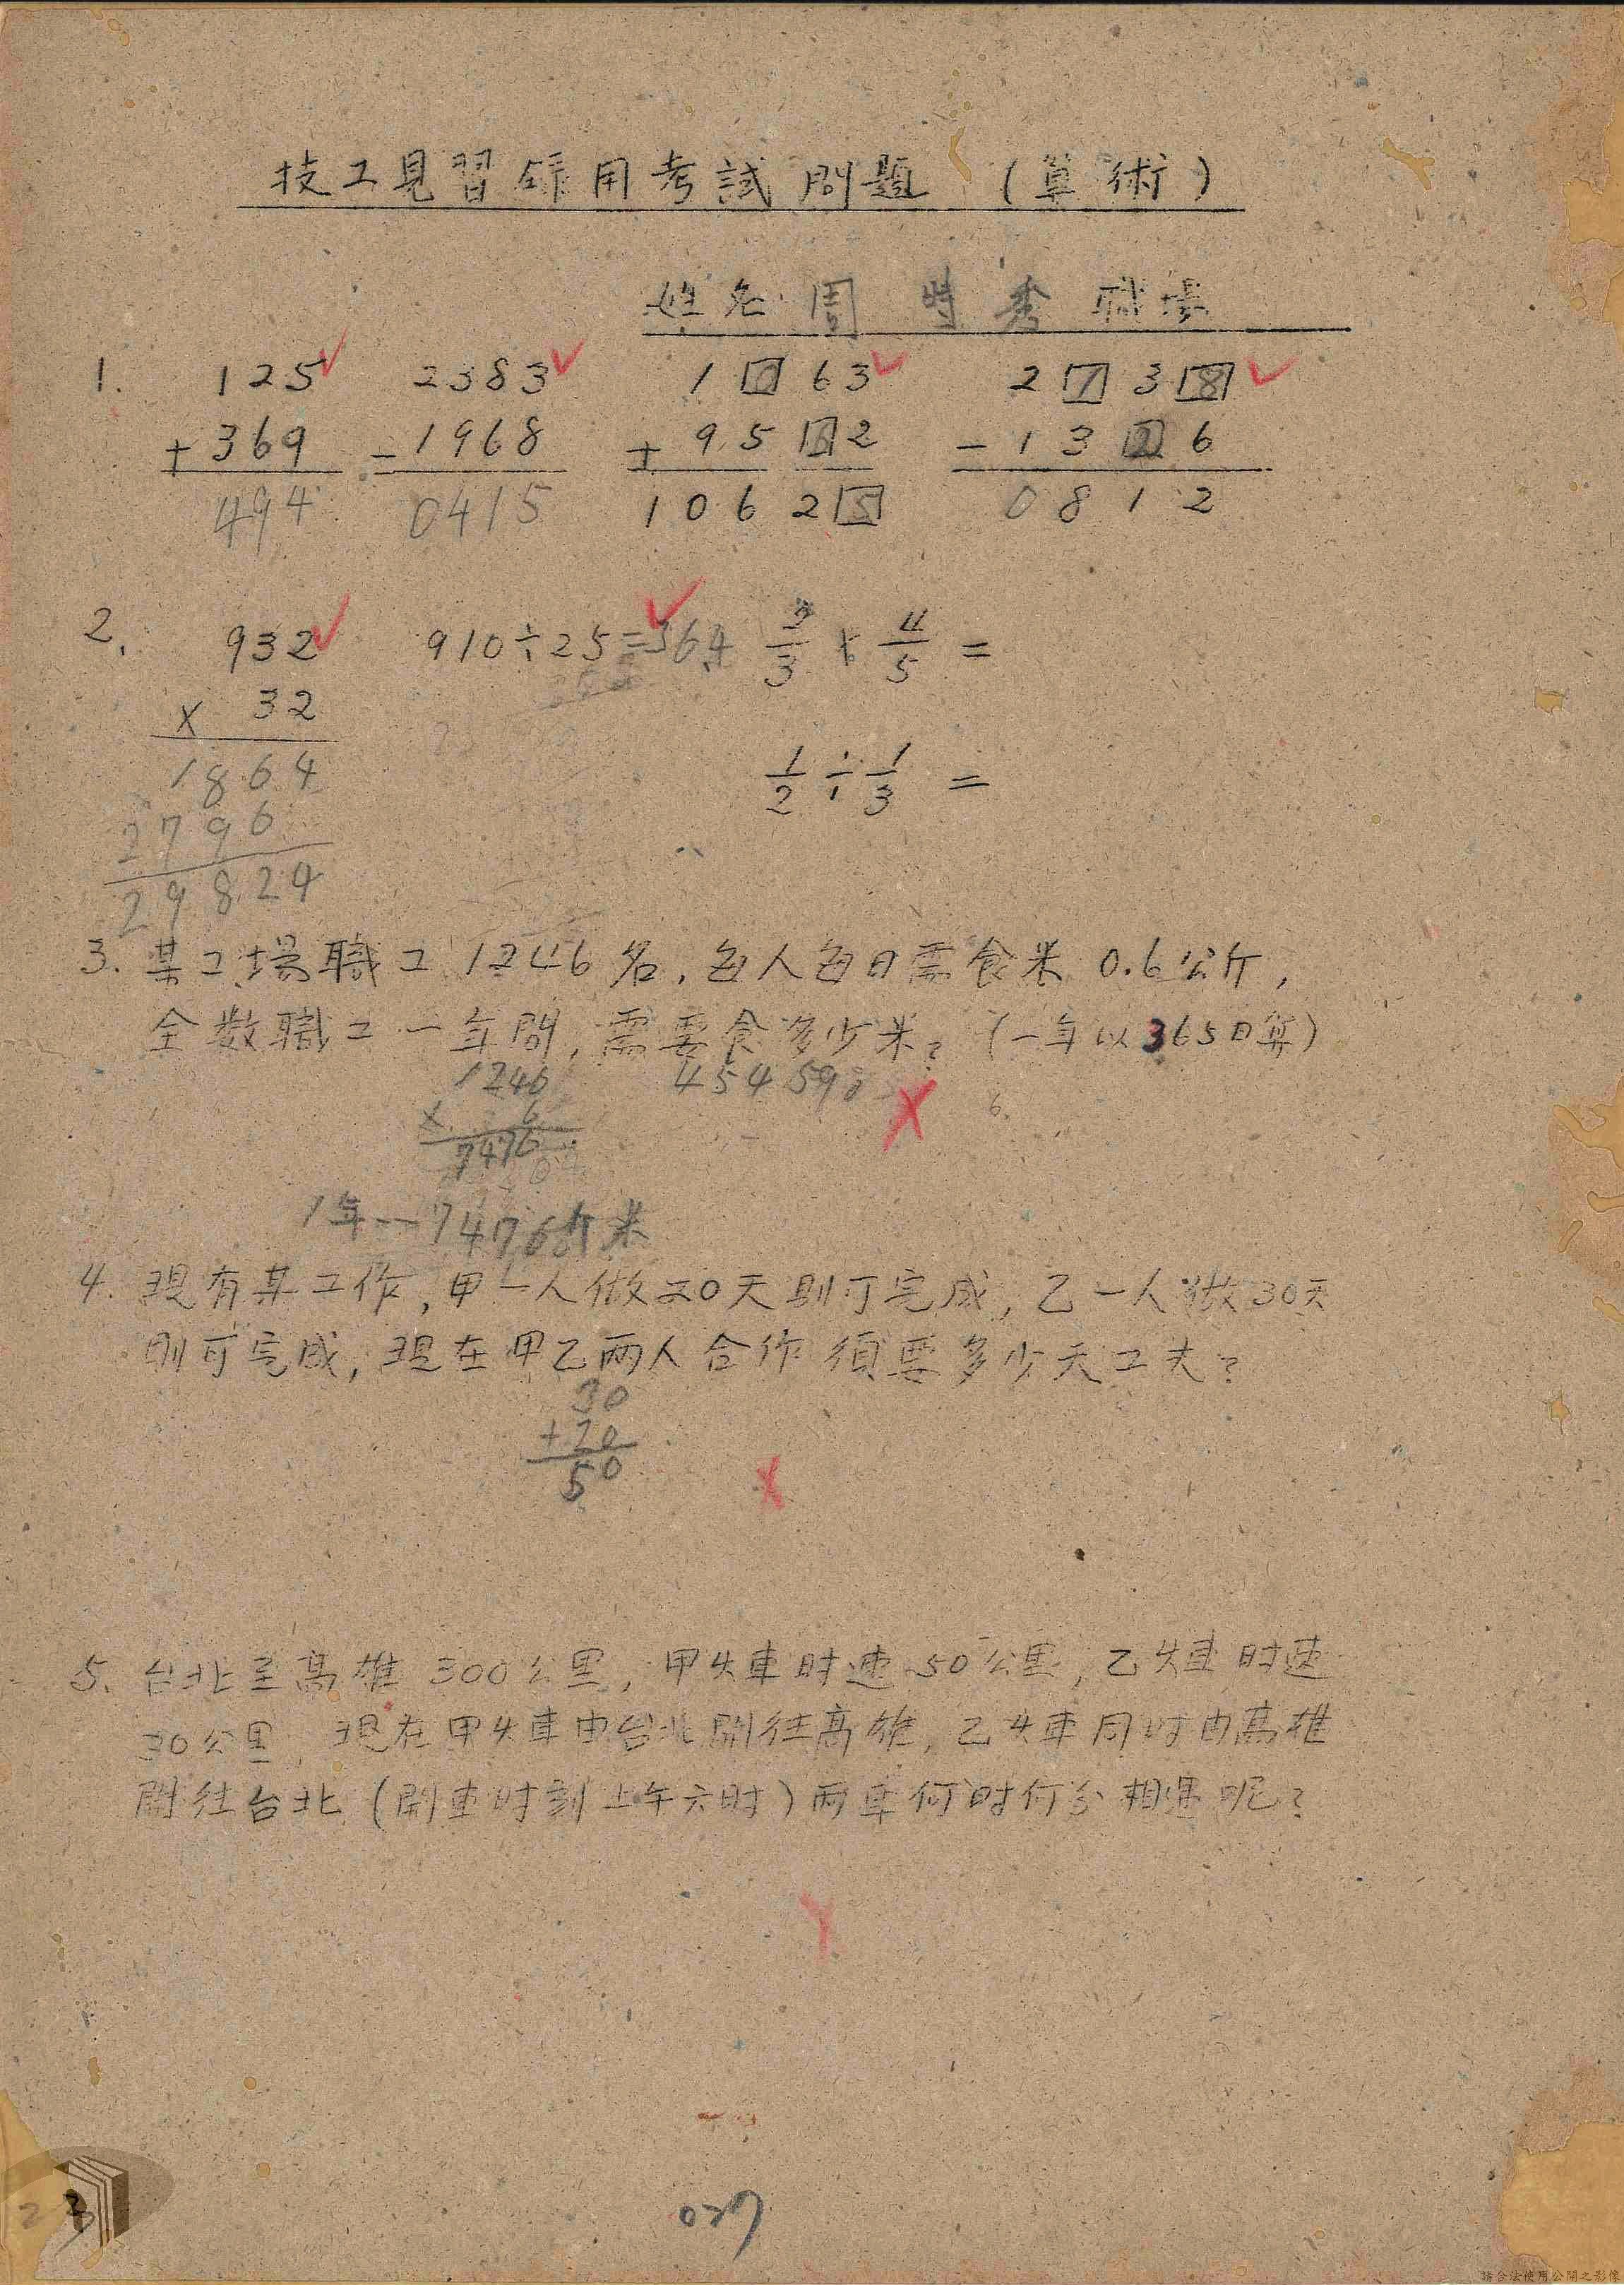 技工見習錄用考試問題 (算術)
姓名 周 時 秀 職場
1. 125 2383 1 0 63 2 1 3 8
+ 369 - 1968 + 95 6 2 - 13 2 6
494 0415 1062 5 0812
2. 932 910÷25=364 2/3 × 4/5 =
× 32
1/2 ÷ 1/3 =
1864
2796
29824
3. 某工場職工 1246 名, 每人每日需食米 0.6 公斤,
全数職工一年間, 需要食多少米? (一年以365日算)
1246 454590
× 6
7476
1年--7476斤米
4. 現有某工作, 甲一人做20天則可完成, 乙一人做30天
則可完成, 現在甲乙兩人合作須要多少天工夫?
30
+20
50
5. 台北至高雄 300公里, 甲火車时速 50公里, 乙火車时速
30公里, 現在甲火車由台北開往高雄, 乙火車同时由高雄
開往台北 (開車时刻上午六时) 兩車何时何分相遇呢?
23
027
請合法使用公開之影像